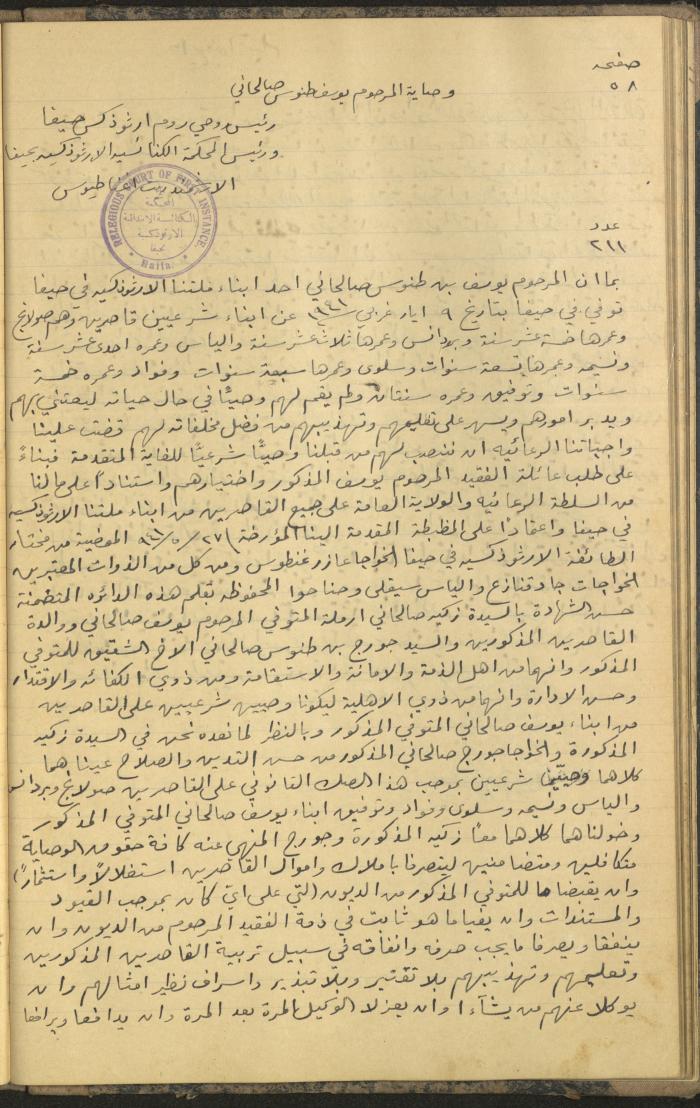 صفحه
٥٨
وصاية المرحوم يوسف طنوس صالحاني
رئيس روحي روم ارثوذكس حيفا
ورئيس المحكمة الكنائسيه الارثوذكسيه بحيفا
RELEGIOUS COURT OF FIRST INSTANCE
المحكمة
الكنائسية الابتدائية
الارثوذكسية
بحيفا
Haifa
عدد
٢١١
بما ان المرحوم يوسف بن طنوس صالحاني احد ابناء ملتنا الارثوذكسيه في حيفا
توفي في حيفا بتاريخ ٩ ايار غربي سنة ١٩٤١ عن ابناء شرعيين قاصرين وهم صولانج
وعمرها خمسة عشر سنة وبردانس وعمرها ثلاث عشر سنة والياس وعمره احدى عشر سنة
ونسيمه وعمرها تسعة سنوات وسلوى وعمرها سبعة سنوات وفواد وعمره خمسة
سنوات وتوفيق وعمره سنتان ولم يقم لهم وصيًا في حال حياته ليعتني بهم
ويدبر امورهم ويسهر على تعليمهم وتهذيبهم من فضل مخلفاته لهم قضت علينا
واجباتنا الرعائيه ان ننصب لهم من قبلنا وصيًا شرعيًا للغاية المتقدمة فبناءً
على طلب عائلة الفقيد المرحوم يوسف المذكور واختيارهم واستنادًا على مالنا
من السلطة الرعائيه والولاية العامة على جميع القاصرين من ابناء ملتنا الارثوذكسيه
في حيفا واعتمادًا على المظبطة المقدمة الينا المؤرخة ٢٧/٥/٩٤١ الممضية من مختار
الطائفة الارثوذكسيه في حيفا الخواجا عازر غنطوس ومن كل من الذوات المعتبرين
الخواجات جاد قنازع والياس سيقلي وحنا حوا المحفوظه بقلم هذه الدائره المتضمنة
حسن الشهادة بالسيدة زكيه صالحاني ارملة المتوفي المرحوم يوسف صالحاني ووالدة
القاصرين المذكورين والسيد جورج بن طنوس صالحاني الاخ الشقيق للمتوفي
المذكور وانهما من اهل الذمة والامانة والاستقامة ومن ذوي الكفائه والاقتدار
وحسن الادارة وانهما من ذوي الاهلية ليكونا وصيين شرعيين على القاصرين
من ابناء يوسف صالحاني المتوفي المذكور وبالنظر لما نعده نحن في السيدة زكيه
المذكورة والخواجا جورج صالحاني المذكور من حسن التدين والصلاح عيناهما
كلاهما وصيين شرعيين بموجب هذا الصك القانوني على القاصرين صولانج وبردانس
والياس ونسيمه وسلوى وفواد وتوفيق ابناء يوسف صالحاني المتوفي المذكور
وخولناهما كلاهما معًا زكيه المذكورة وجورج المنهي عنه كافة حقوق الوصاية
متكافلين ومتضامنين ليتصرفا باملاك واموال القاصرين استغلالًا واستثمارًا
وان يقبضا ما للمتوفي المذكور من الديون التي على ايٍ كان بموجب القيود
والمستندات وان يفيا ما هو ثابت في ذمة الفقيد المرحوم من الديون وان
ينفقا ويصرفا ما يجب صرفه وانفاقه في سبيل تربية القاصرين المذكورين
وتعليمهم وتهذيبهم بلا تقتير وبلا تبذير واسراف نظير امثالهم وان
يوكلا عنهم من يشآءا وان يعزلا الوكيل المرة بعد المرة وان يدافعا ويرافعا